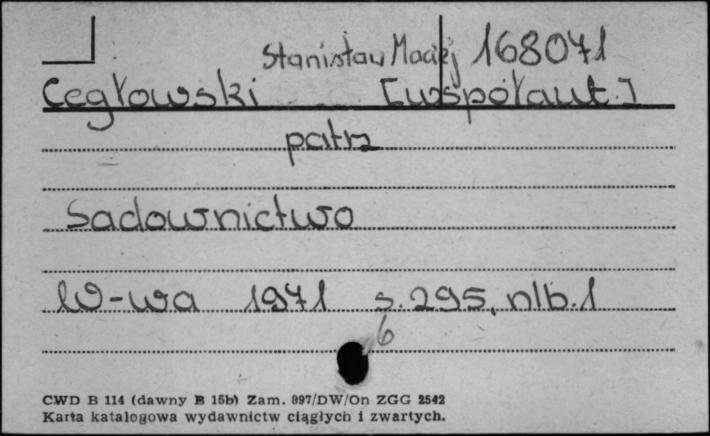 Stanisław Maciej 168071
Cegłowski [współaut.]
patrz
Sadownictwo
W-wa 1971 s. 295, nlb. 1
6
CWD B 114 (dawny B 15b) Zam. 897/DW/On ZGG 2542
Karta katalogowa wydawnictw ciągłych i zwartych.